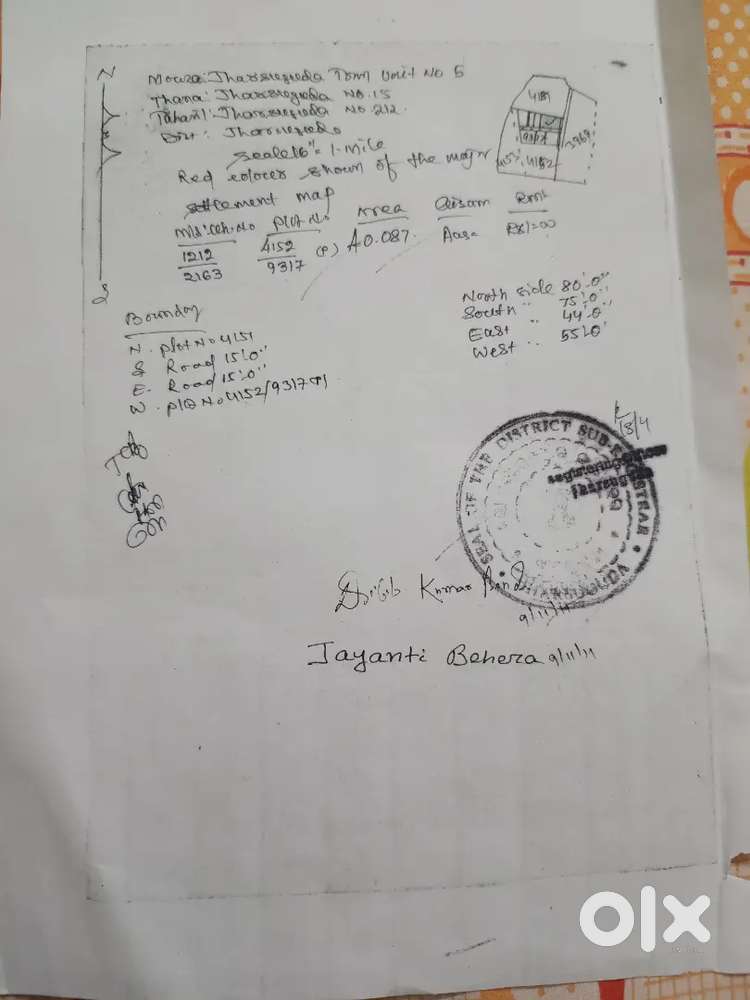 N
Mouza: Jharsuguda Town Unit No 5
Thana: Jharsuguda No. 15
Tahasil: Jharsuguda No. 212.
Dist: Jharsuguda
Scale 16" = 1 Mile
Red colour shown of the major
settlement map
4151
4152
Plot No Area Kisam Rent
1212 4152 (P) A0.087. Rs 1=00
2163 9317
S
North side 80'-0"
South " 75'-0"
East " 44'-0"
West " 55'-0"
Boundary
N. Plot No 4151
S. Road 15'-0"
E. Road 15'-0"
W. Plot No 4152/9317(P)
18/4
SEAL OF THE DISTRICT SUB-REGISTRAR
JHARSUGUDA
Kumar
9/11/11
Jayanti Behera 9/11/11
olx